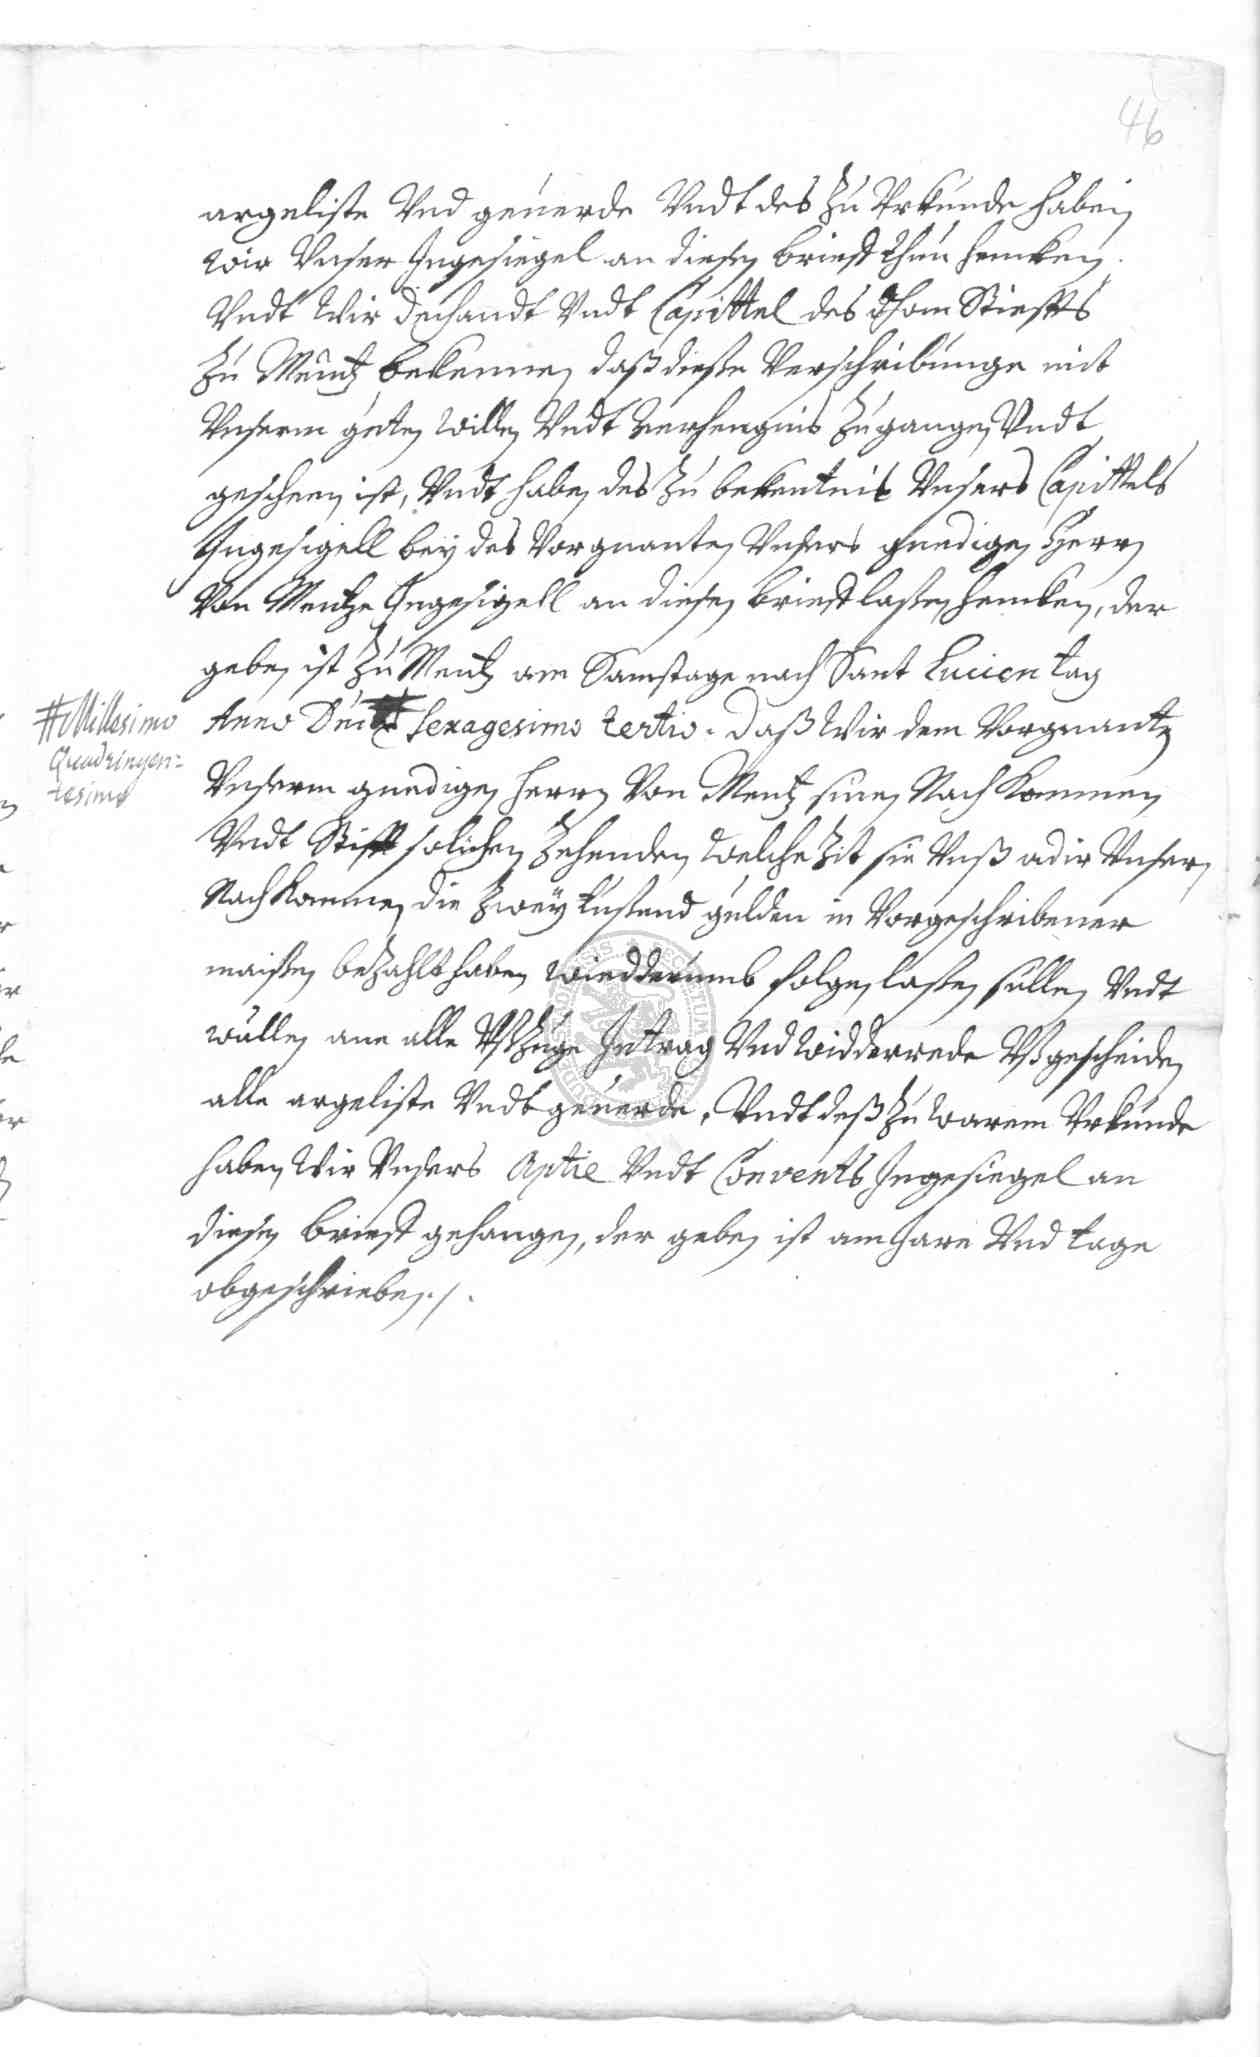 46
argeliste Vnd geuerde Vndt des Zu Vrkunde haben
wir Vnser Ingesiegel an diesen brieff thun hencken.
Vndt Wir Dechandt Vndt Capittel des Thom Stieffts
Zu Mentz bekennen daß dieße Verschribunge mit
Vnserm guten willen Vndt verhengnis Zugangen Vndt
gescheen ist, Vndt haben des Zu bekentnis Vnsers Capittels
Ingesigell bey des Vorgnanten Vnsers gnedigen Herrn
Von Mentze Ingesigell an diesen brieff laßen hencken, der
geben ist Zu Mentz am Samstage nach Sant Lucien tag
Anno Dni # Sexagesimo tertio. Daß Wir dem Vorgnanten
# Millesimo
Quadringen=
tesimo
Vnserm gnedigen Herrn Von Mentz sinen Nach Kommen
Vndt Stifft solichen Zehenden welche Zit sie Vnß adir Vnsern
Nach Kommen die Zwey tußend gulden in Vorgeschribener
maißen beZahlt haben wiedderumb folgen laßen sullen Vndt
wullen ane alle VßZuge Intrag Vnd widderrede Vßgescheiden
alle argeliste Vndt geuerde, Vndt deß Zu warem Vrkunde
haben Wir Vnsers Aptie Vndt Convents Ingesiegel an
diesen brieff gehangen, der geben ist am Jare Vnd tage
obgeschrieben./.